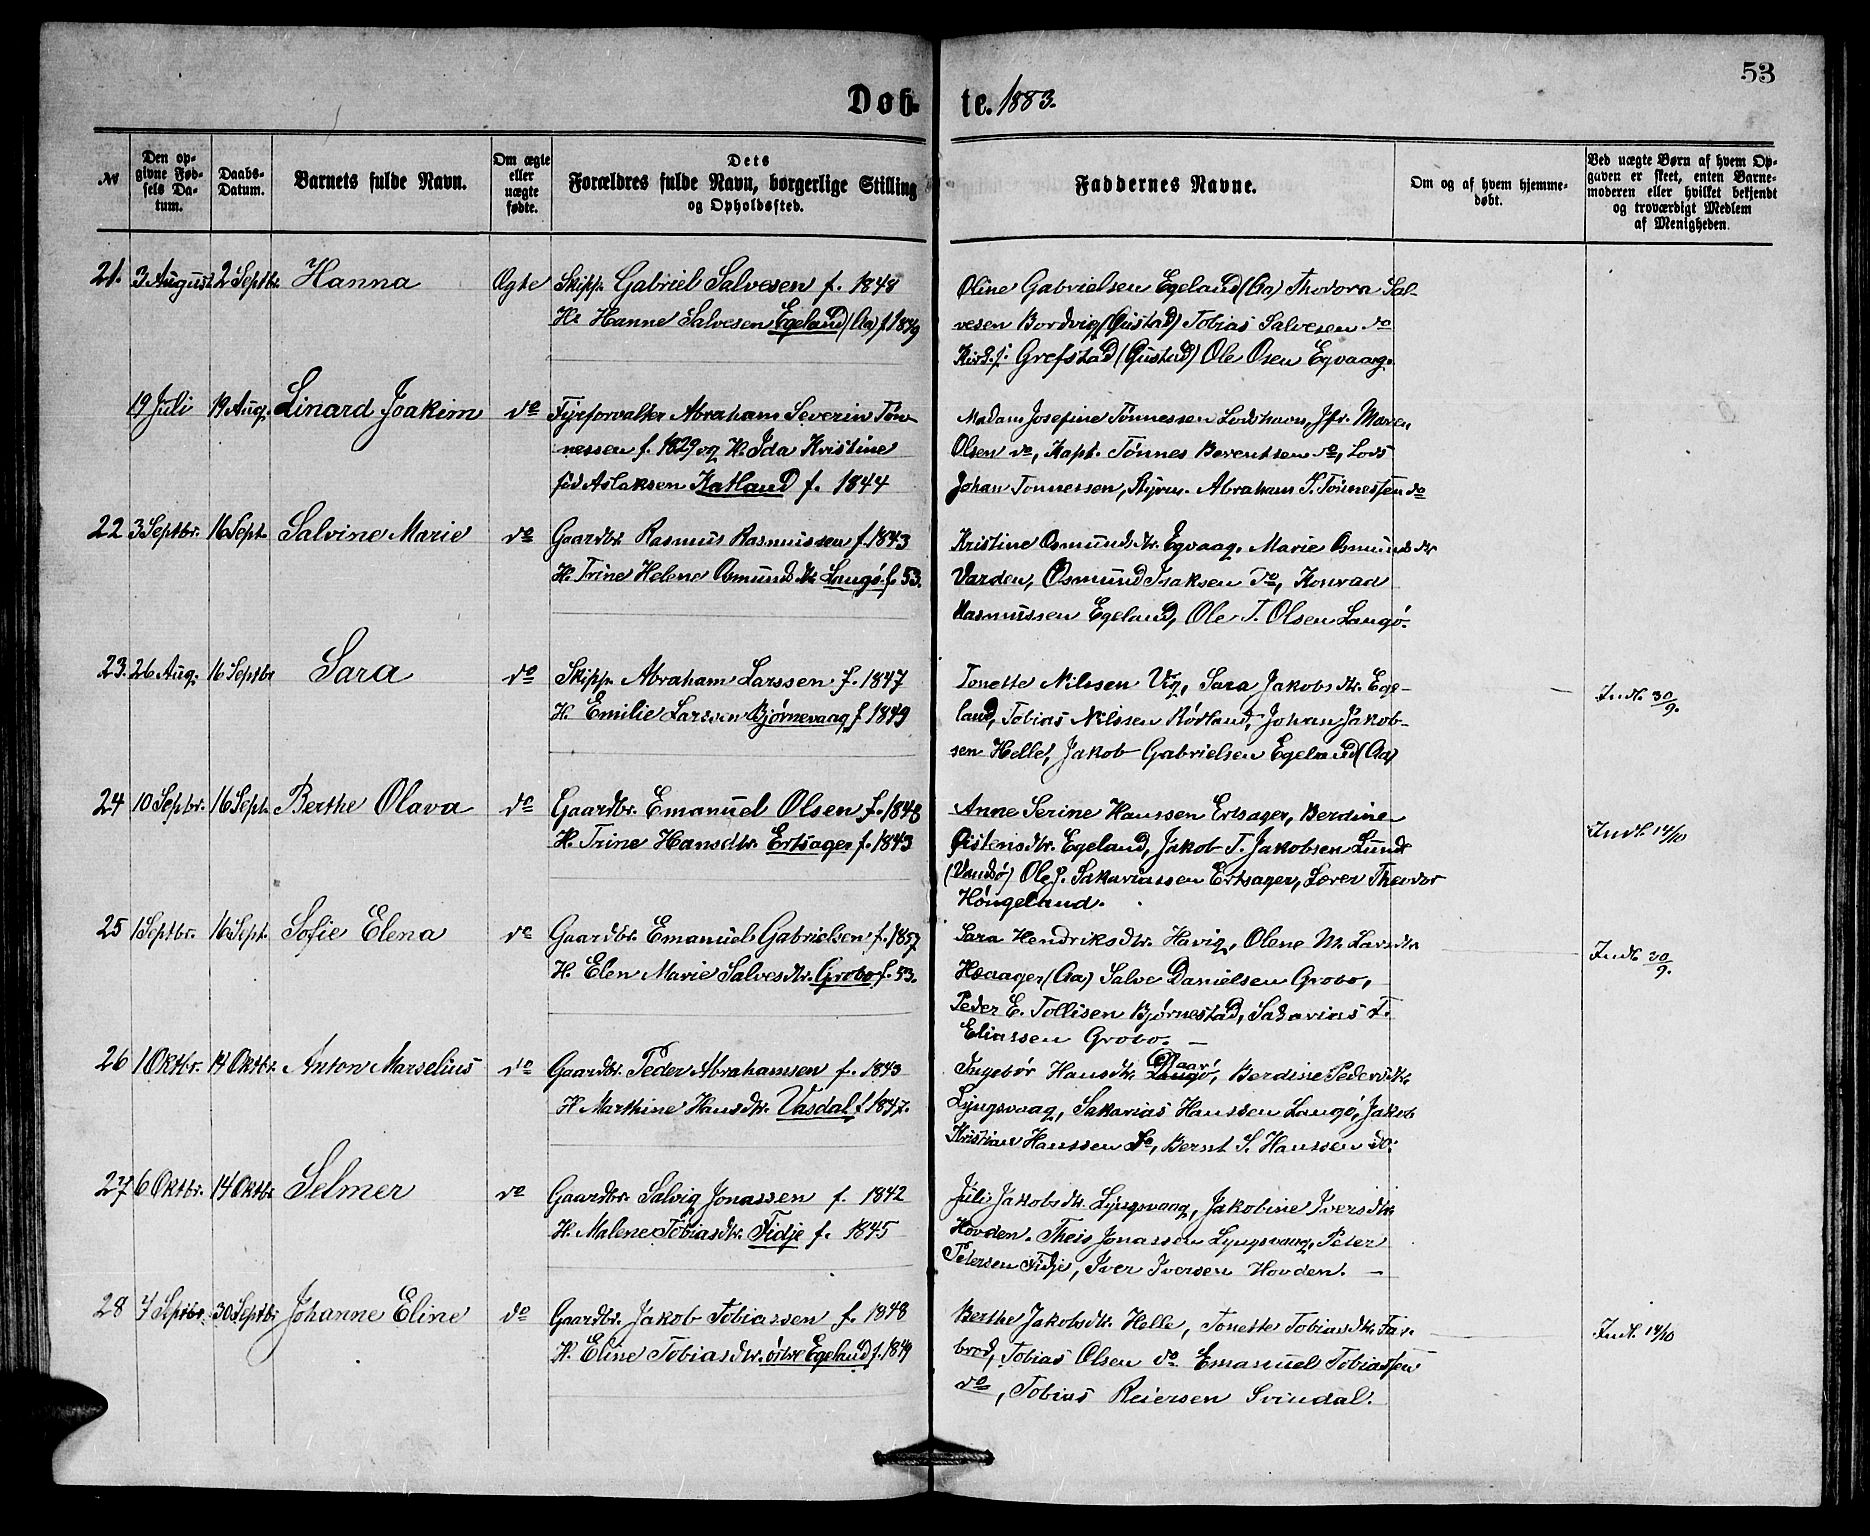 53
Døb- te. 1883.
№
Den opgivne Fødsels Datum.
Daabs-Datum.
Barnets fulde Navn.
Om ægte eller uægte fødte.
Dets Forældres fulde Navn, borgerlige Stilling og Opholdssted.
Faddernes Navne.
Om og af hvem hjemmedøbt.
Ved uægte Børn af hvem Opgaven er skeet, enten Barnemoderen eller hvilket bekjendt og troværdigt Medlem af Menigheden.
21. 3 August 2 Septbr. Hanna Ægte Skipp. Gabriel Salvesen f. 1848
H. Hanne Salvesen Egeland (Aa) f 1849
Oline Gabrielsen Egeland (Aa) Thodora Sal-
vesen Bordvig (Gustad) Tobias Salvesen do
Grefstad (Gustad) Ole Osen Eqvaag.
19 Juli 19 Aug. Linard Joakim do Fyrforvalter Abraham Severin Tøn-
nessen f. 1829 og H. Ida Kristine
fød Aslaksen Katland f. 1844
Madam Josefine Tønnessen Lodshavn, Jfr. Maren
Olsen do, Kapt. Tønnes Berentsen do, Lods
Johan Tønnessen, Styrm. Abraham S. Tønnessen do
22 3 Septbr. 16 Sept. Salvine Marie do Gaardbr. Rasmus Rasmussen f. 1843
H. Trine Helene Osmundsdtr. Langø f. 53.
Kristine Osmundsdtr. Eqvaag, Marie Osmundsdtr
Varden, Osmund Isaksen do, Konrad
Rasmussen Egeland, Ole T. Olsen Langø.
23. 26 Aug. 16 Septbr Sara do Skipp. Abraham Larssen f. 1847
H. Emilie Larssen Bjørnevaag f 1849
Tonette Nilssen Vig, Sara Jakobsdtr. Ege-
land, Tobias Nilssen Rødland, Johan Jakob-
sen Helle, Jakob Gabrielsen Egeland (Aa)
Indt. 30/9.
24 10 Sepbr. 16 Sept. Berthe Olava do Gaardbr. Emanuel Olsen f. 1848
H. Trine Hansdtr. Ertsager f. 1843
Anne Serine Hanssen Ertsager, Berdine
Øistensdtr. Egeland, Jakob T. Jakobsen Lunde
(Vandsø) Ole J. Sakariassen Ertsager, Lærer Theodor
Høngeland.
Indt. 14/10
25 1 Septbr. 16 Sept. Sofie Elena do Gaardbr. Emanuel Gabrielsen f. 1857
H. Elen Marie Salvesdtr. Grobo f. 53.
Sara Hendriksdtr. Havig, Olene M. Larsdtr
Haaager (Aa) Salve Danielsen Grobo,
Peder E. Tollisen Bjørnestad, Sakarias T.
Eliassen Grobo. –
Indt. 30/9.
26 1 Oktbr. 14 Oktbr. Anton Marselius do Gaardbr. Peder Abrahamsen f. 1843
H Marthine Hansdtr. Vasdal f 1847.
Ingebør Hansdtr Langø, Berdine Pedersdtr.
Lyngsvaag, Sakarias Hanssen Langø, Jakob
Kristian Hanssen do, Bernt S. Hanssen do.
27 6 Oktbr. 14 Oktbr Selmer do Gaardbr. Salvig Jonassen f. 1842
H. Malene Tobiasdtr. Fidje f. 1845
Juli Jakobsdtr. Lyngsvaag, Jakobine Iversdtr.
Hovden. Theis Jonassen Lyngsvaag, Peter
Petersen Fidje, Iver Iversen Hovden. –
28 7 Septbr. 30 Septbr Johanne Eline do Gaardbr. Jakob Tobiassen f. 1848
H. Eline Tobiasdtr. østre Egeland f. 1849
Berthe Jakobsdtr. Helle, Tonette Tobiasdtr. Far-
brod, Tobias Olsen do Emanuel Tobiassen
do, Tobias Reiersen Svindal.
Indt. 14/10